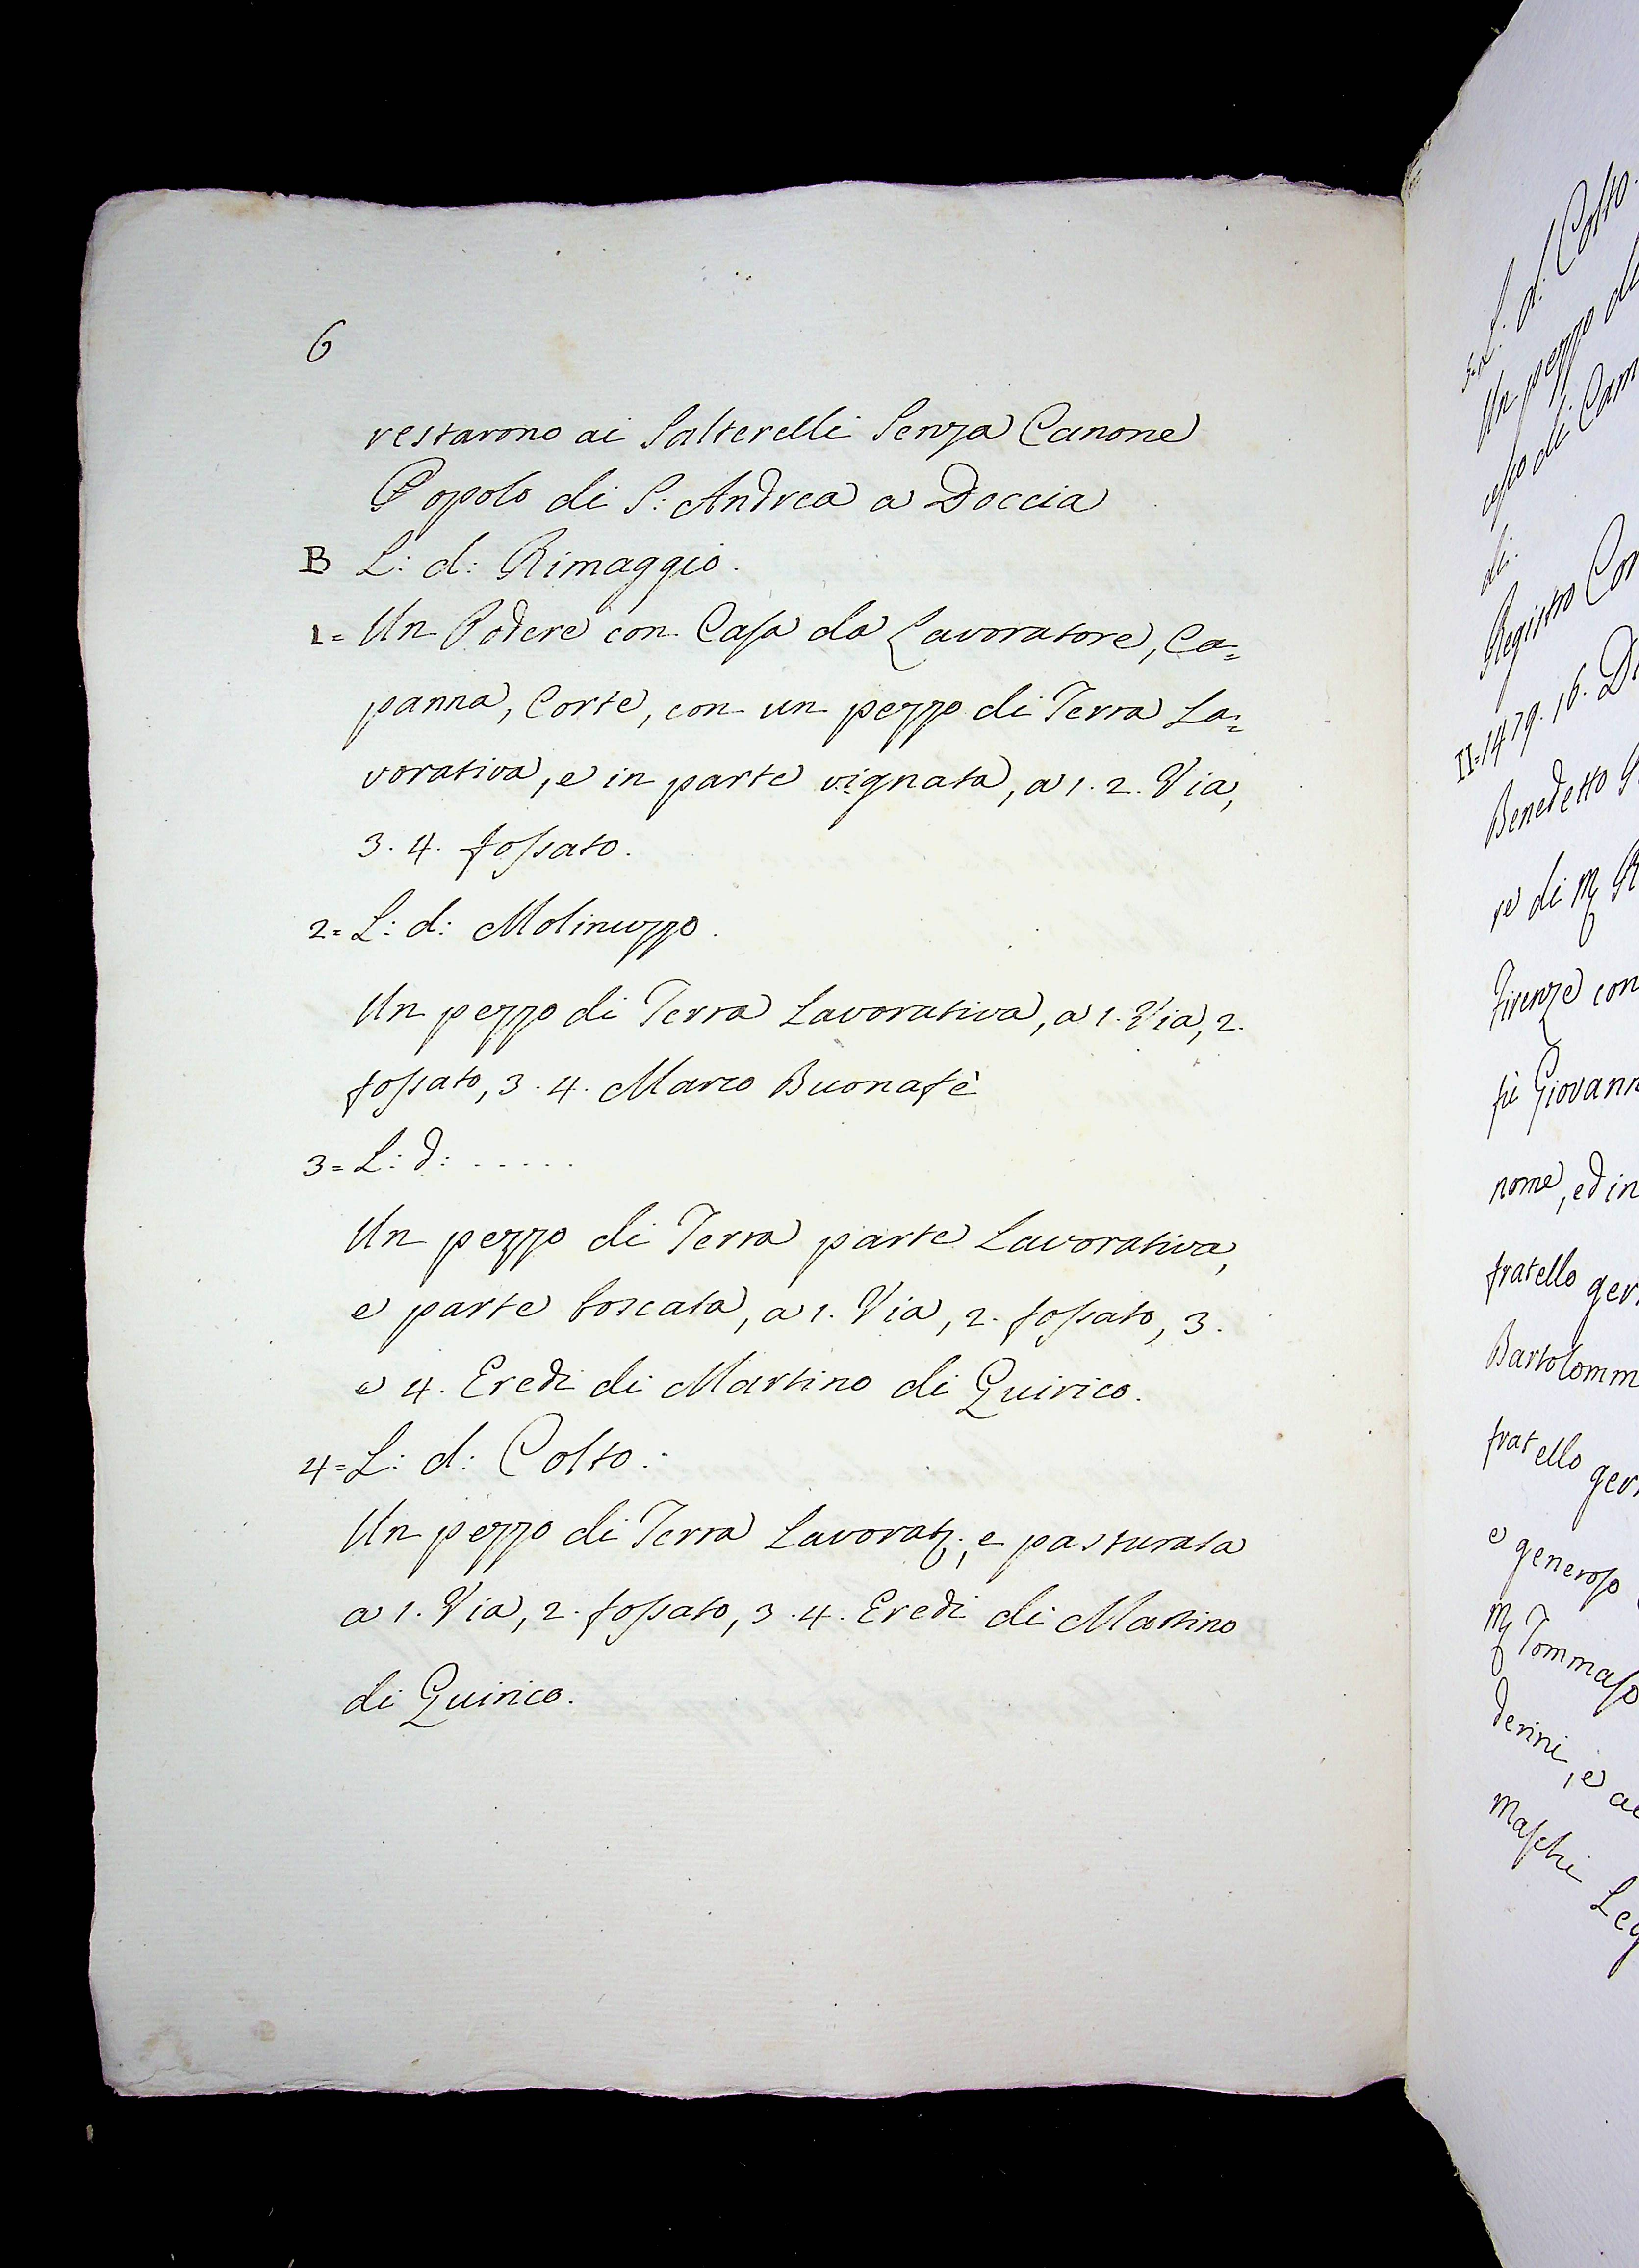 6
restarono ai Salterelli Senza Canone
Popolo di S: Andrea a Doccia
B L: d: Rimaggio.
1= Un Podere con Casa da Lavoratore, Ca=
panna, Corte, con un pezzo di Terra La=
vorativa, e in parte vignata, a 1. 2. Via,
3. 4. fossato.
2= L: d: Molinuzzo.
Un pezzo di Terra Lavorativa, a 1. Via, 2.
fossato, 3. 4. Marco Buonafè
3= L: d: .....
Un pezzo di Terra parte Lavorativa,
e parte boscata, a 1. Via, 2. fossato, 3.
e 4. Eredi di Martino di Quirico.
4= L: d: Colto.
Un pezzo di Terra Lavorat:, e pasturata
a 1. Via, 2. fossato, 3. 4. Eredi di Martino
di Quirico.
L: d: Colto.
Un pezzo di
di
Registro
II=1479. 16.
Benedetto
re di
Firenze con
Giovann
nome, ed in
fratello ger
Bartolomm
fratello ger
e generoso
Tommaso
derini, e
Maschi Leg